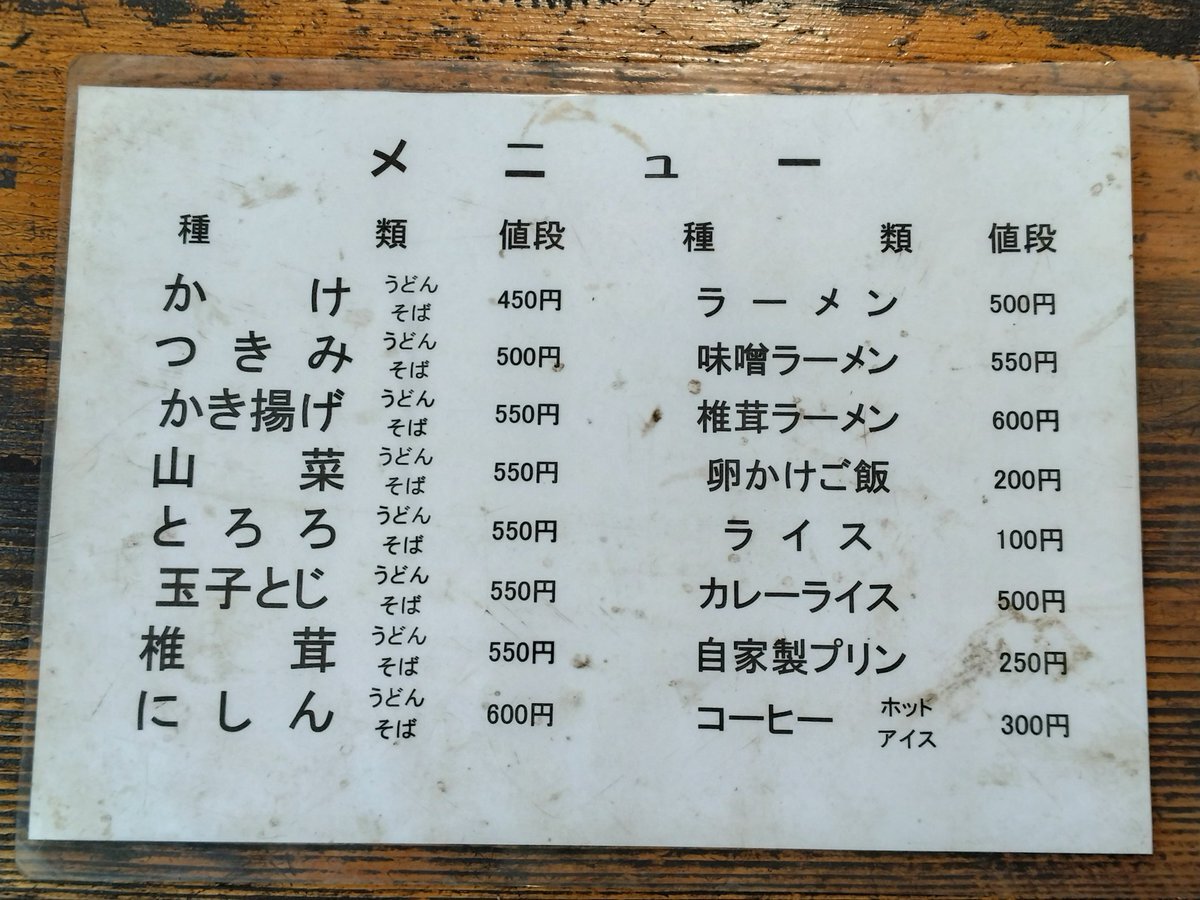 メニュー
種類 値段 種類 値段
かけ うどん そば 450円 ラーメン 500円
つきみ うどん そば 500円 味噌ラーメン 550円
かき揚げ うどん そば 550円 椎茸ラーメン 600円
山菜 うどん そば 550円 卵かけご飯 200円
とろろ うどん そば 550円 ライス 100円
玉子とじ うどん そば 550円 カレーライス 500円
椎茸 うどん そば 550円 自家製プリン 250円
にしん うどん そば 600円 コーヒー ホット アイス 300円